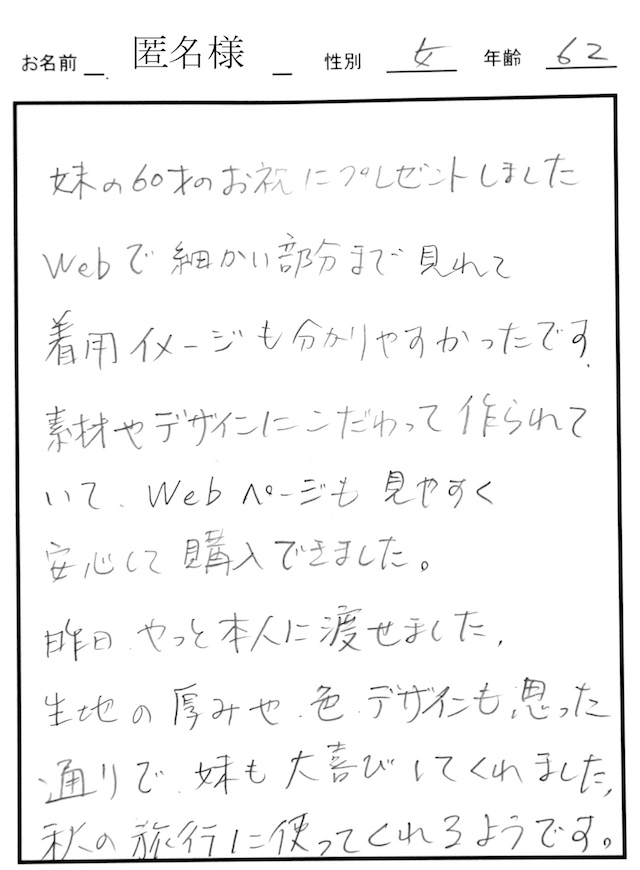 お名前 匿名様 性別 女 年齢 62
妹の60才のお祝にプレゼントしました
Webで細かい部分まで見れて
着用イメージも分かりやすかったです.
素材やデザインにこだわって作られて
いて、Webページも見やすく
安心して購入できました。
昨日、やっと本人に渡せました,
生地の厚みや、色、デザインも、思った
通りで、妹も大喜びしてくれました,
秋の旅行に使ってくれるようです。